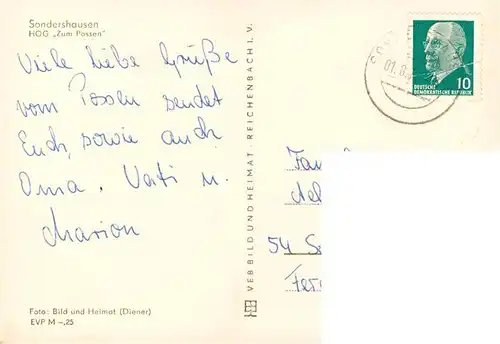 Sondershausen
HOG „Zum Possen"
Viele liebe Grüße
vom Possen sendet
Euch, sowie auch
Oma. Vati u.
Marion
Foto: Bild und Heimat (Diener)
EVP M –,25
VEB BILD UND HEIMAT REICHENBACH I. V.
01.8.
DEUTSCHE
DEMOKRATISCHE REPUBLIK
10
Fam
54 S